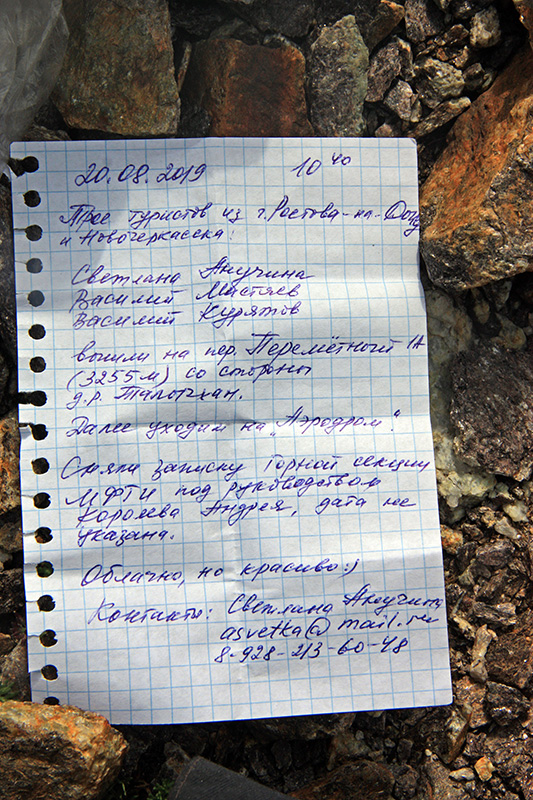 20.08.2019 10 40
Трое туристов из г.Ростова-на-Дону
и Новочеркасска:
Светлана Анучина
Василий Мастяев
Василий Курятов
вышли на пер. Перемётный 1А
(3255 м) со стороны
д.р. Талычхан.
Далее уходим на „Аэродром".
Сняли записку Горной секции
МФТИ под руководством
Королева Андрея, дата не
указана.
Облачно, но красиво :)
Контакты: Светлана Анучина
asvetka@mail.ru
8-928-213-60-48